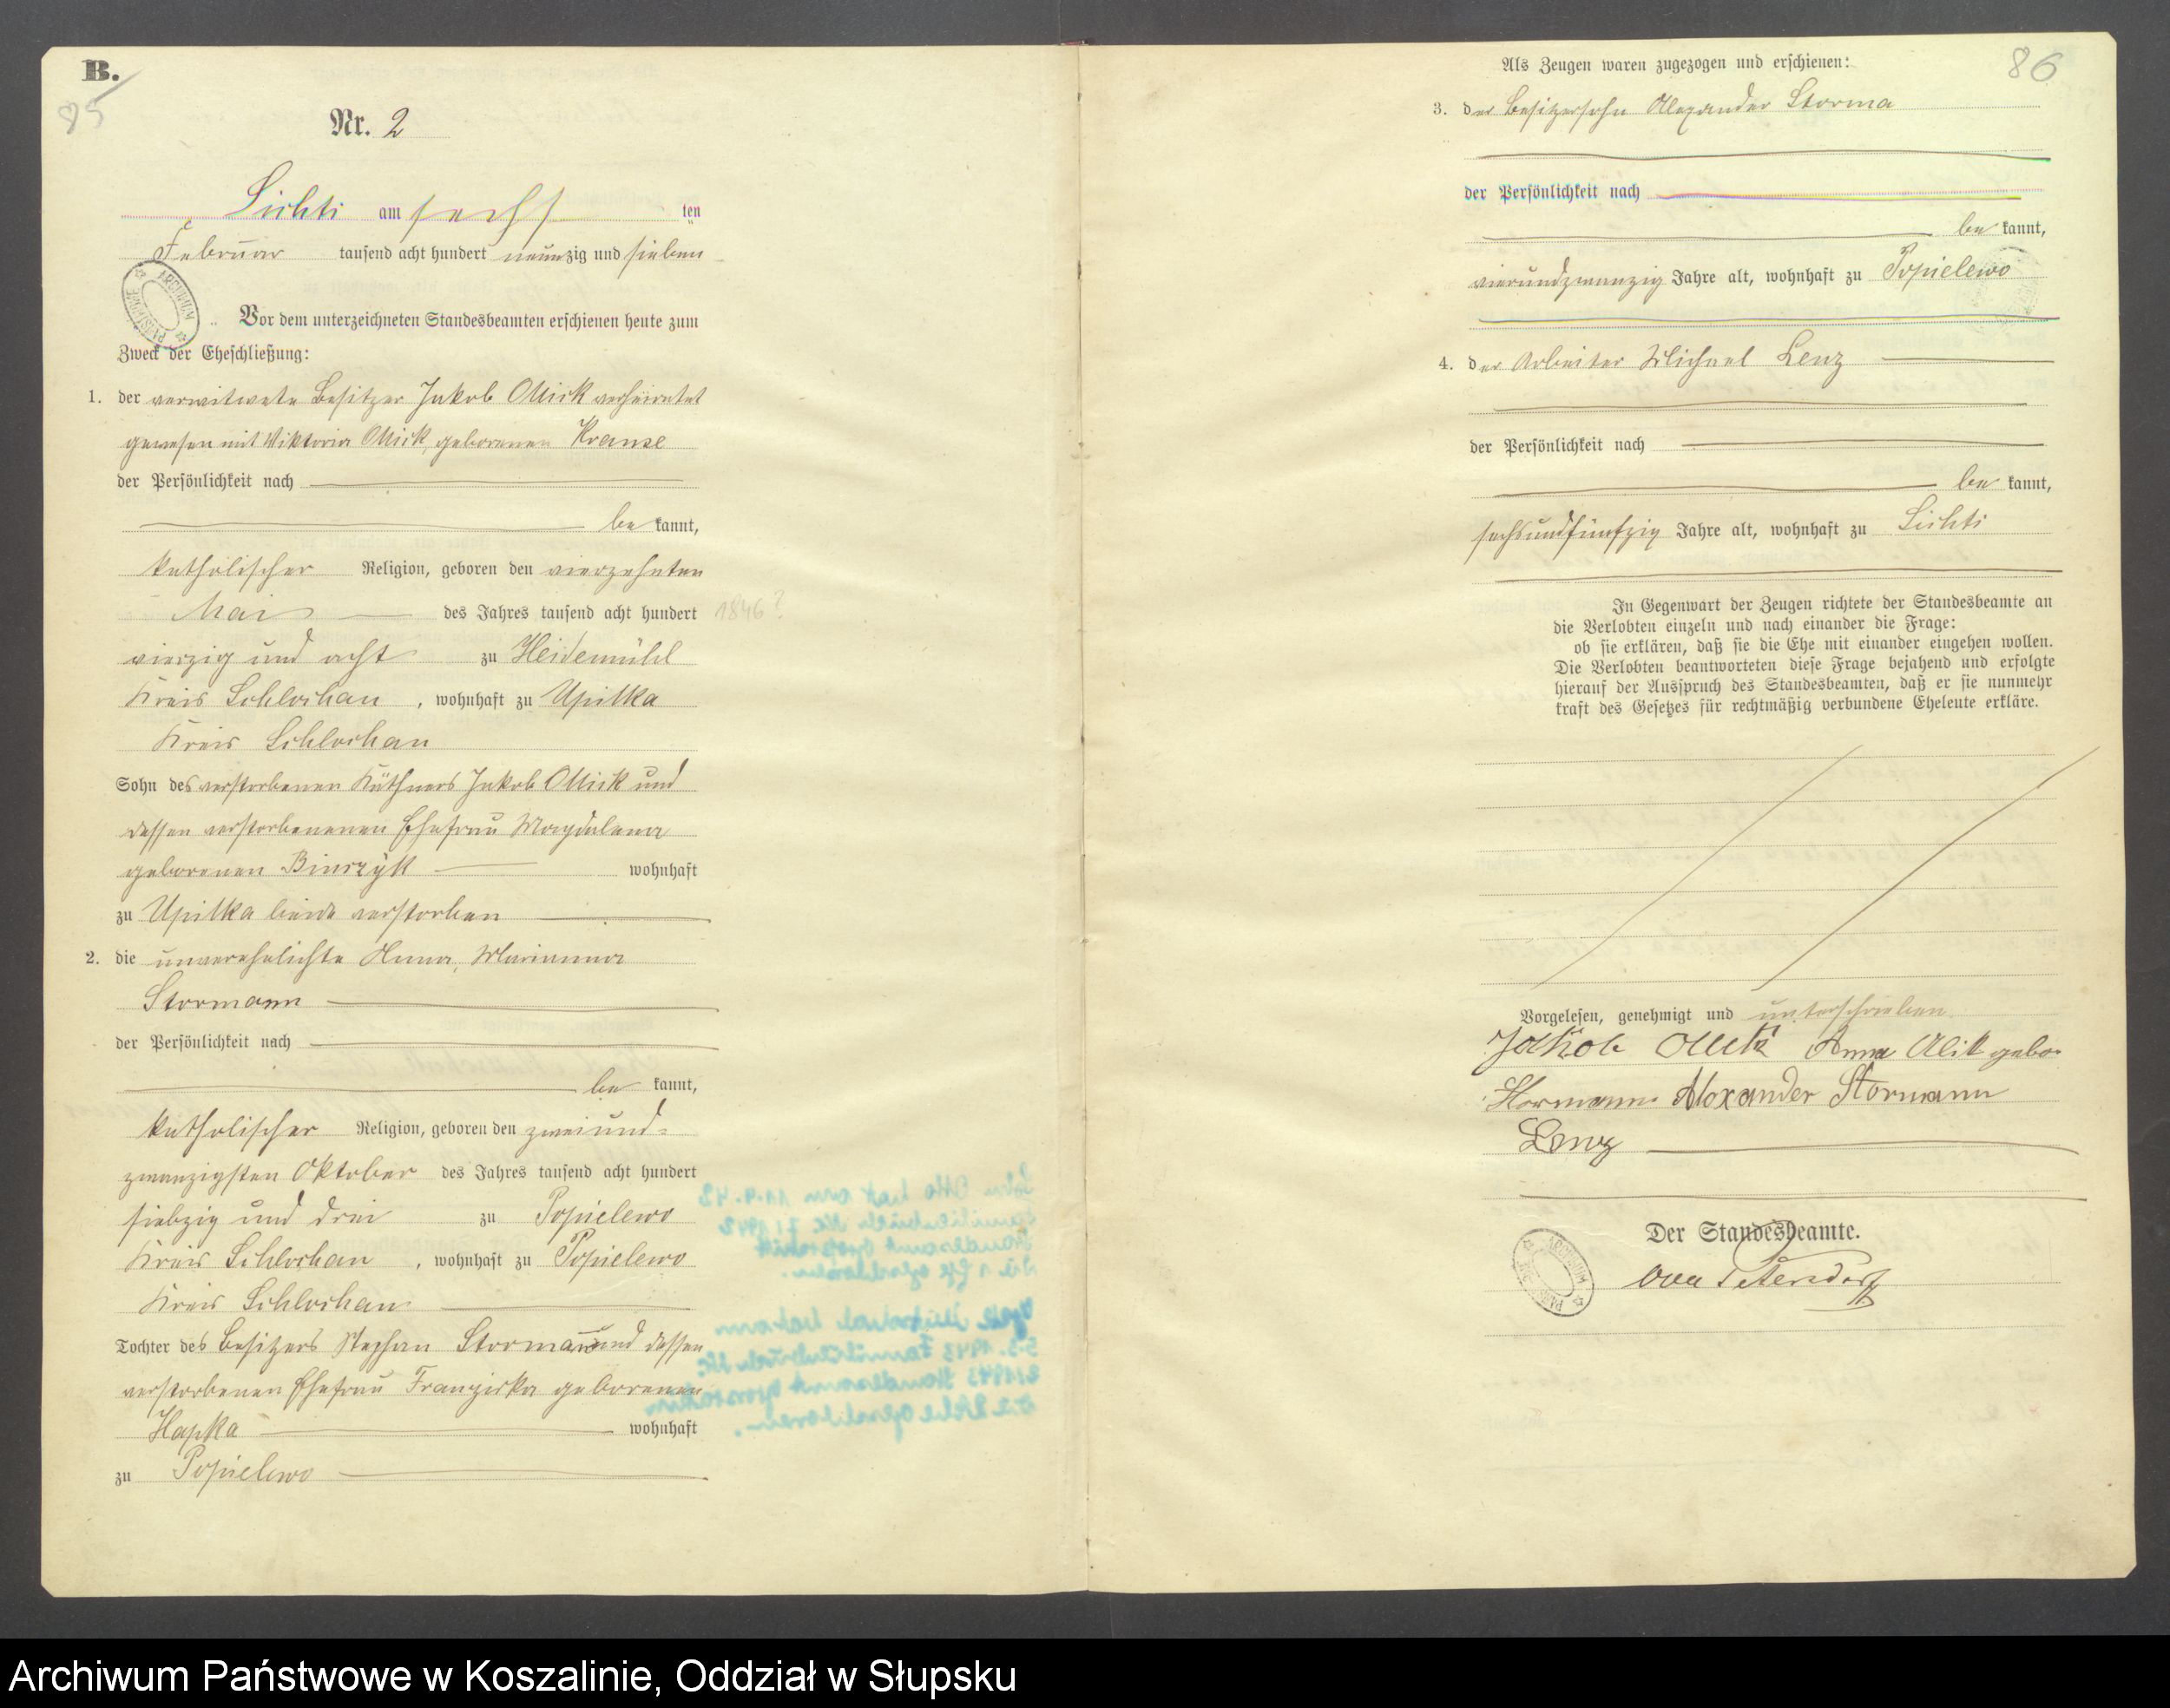 B.
85
Nr. 2
Lichti am sechs ten
Februar tausend acht hundert neunzig und sieben
Vor dem unterzeichneten Standesbeamten erschienen heute zum
Zweck der Eheschließung:
1. der verwitwete Besitzer Jakob Ollick verheiratet
gewesen mit Viktoria Ollick, geborenen Kranse
der Persönlichkeit nach
be kannt,
katholischer Religion, geboren den vierzehnten
Mai des Jahres tausend acht hundert 1846?
vierzig und acht zu Heidemühl
Kreis Schlochau, wohnhaft zu Upilka
Kreis Schlochau
Sohn des verstorbenen Käthners Jakob Ollick und
dessen verstorbenenen Ehefrau Magdalena
geborenen wohnhaft
zu Upilka beide verstorben
2. die unverehelichte Anna, Marianna
Stormann
der Persönlichkeit nach
be kannt,
katholischer Religion, geboren den zweiund-
zwanzigsten Oktober des Jahres tausend acht hundert
siebzig und drei zu Popielewo
Kreis Schlochau, wohnhaft zu Popielewo
Kreis Schlochau
Tochter des Besitzers Stephan Stormann und dessen
verstorbenen Ehefrau Franziska geborenen
Hapka wohnhaft
zu Popielewo
86
Als Zeugen waren zugezogen und erschienen:
3. der Besitzersohn Alexander Storma
der Persönlichkeit nach
be kannt,
vierundzwanzig Jahre alt, wohnhaft zu Popielewo
4. der Arbeiter Michael Lenz
der Persönlichkeit nach
be kannt,
sechsundfünfzig Jahre alt, wohnhaft zu Lichti
In Gegenwart der Zeugen richtete der Standesbeamte an
die Verlobten einzeln und nach einander die Frage:
ob sie erklären, daß sie die Ehe mit einander eingehen wollen.
Die Verlobten beantworteten diese Frage bejahend und erfolgte
hierauf der Ausspruch des Standesbeamten, daß er sie nunmehr
kraft des Gesetzes für rechtmäßig verbundene Eheleute erkläre.
Vorgelesen, genehmigt und unterschrieben
Jakob Ollick Anna Alik gebo
Stormann Alexander Stormann
Lenz
Der Standesbeamte.
Archiwum Państwowe w Koszalinie, Oddział w Słupsku